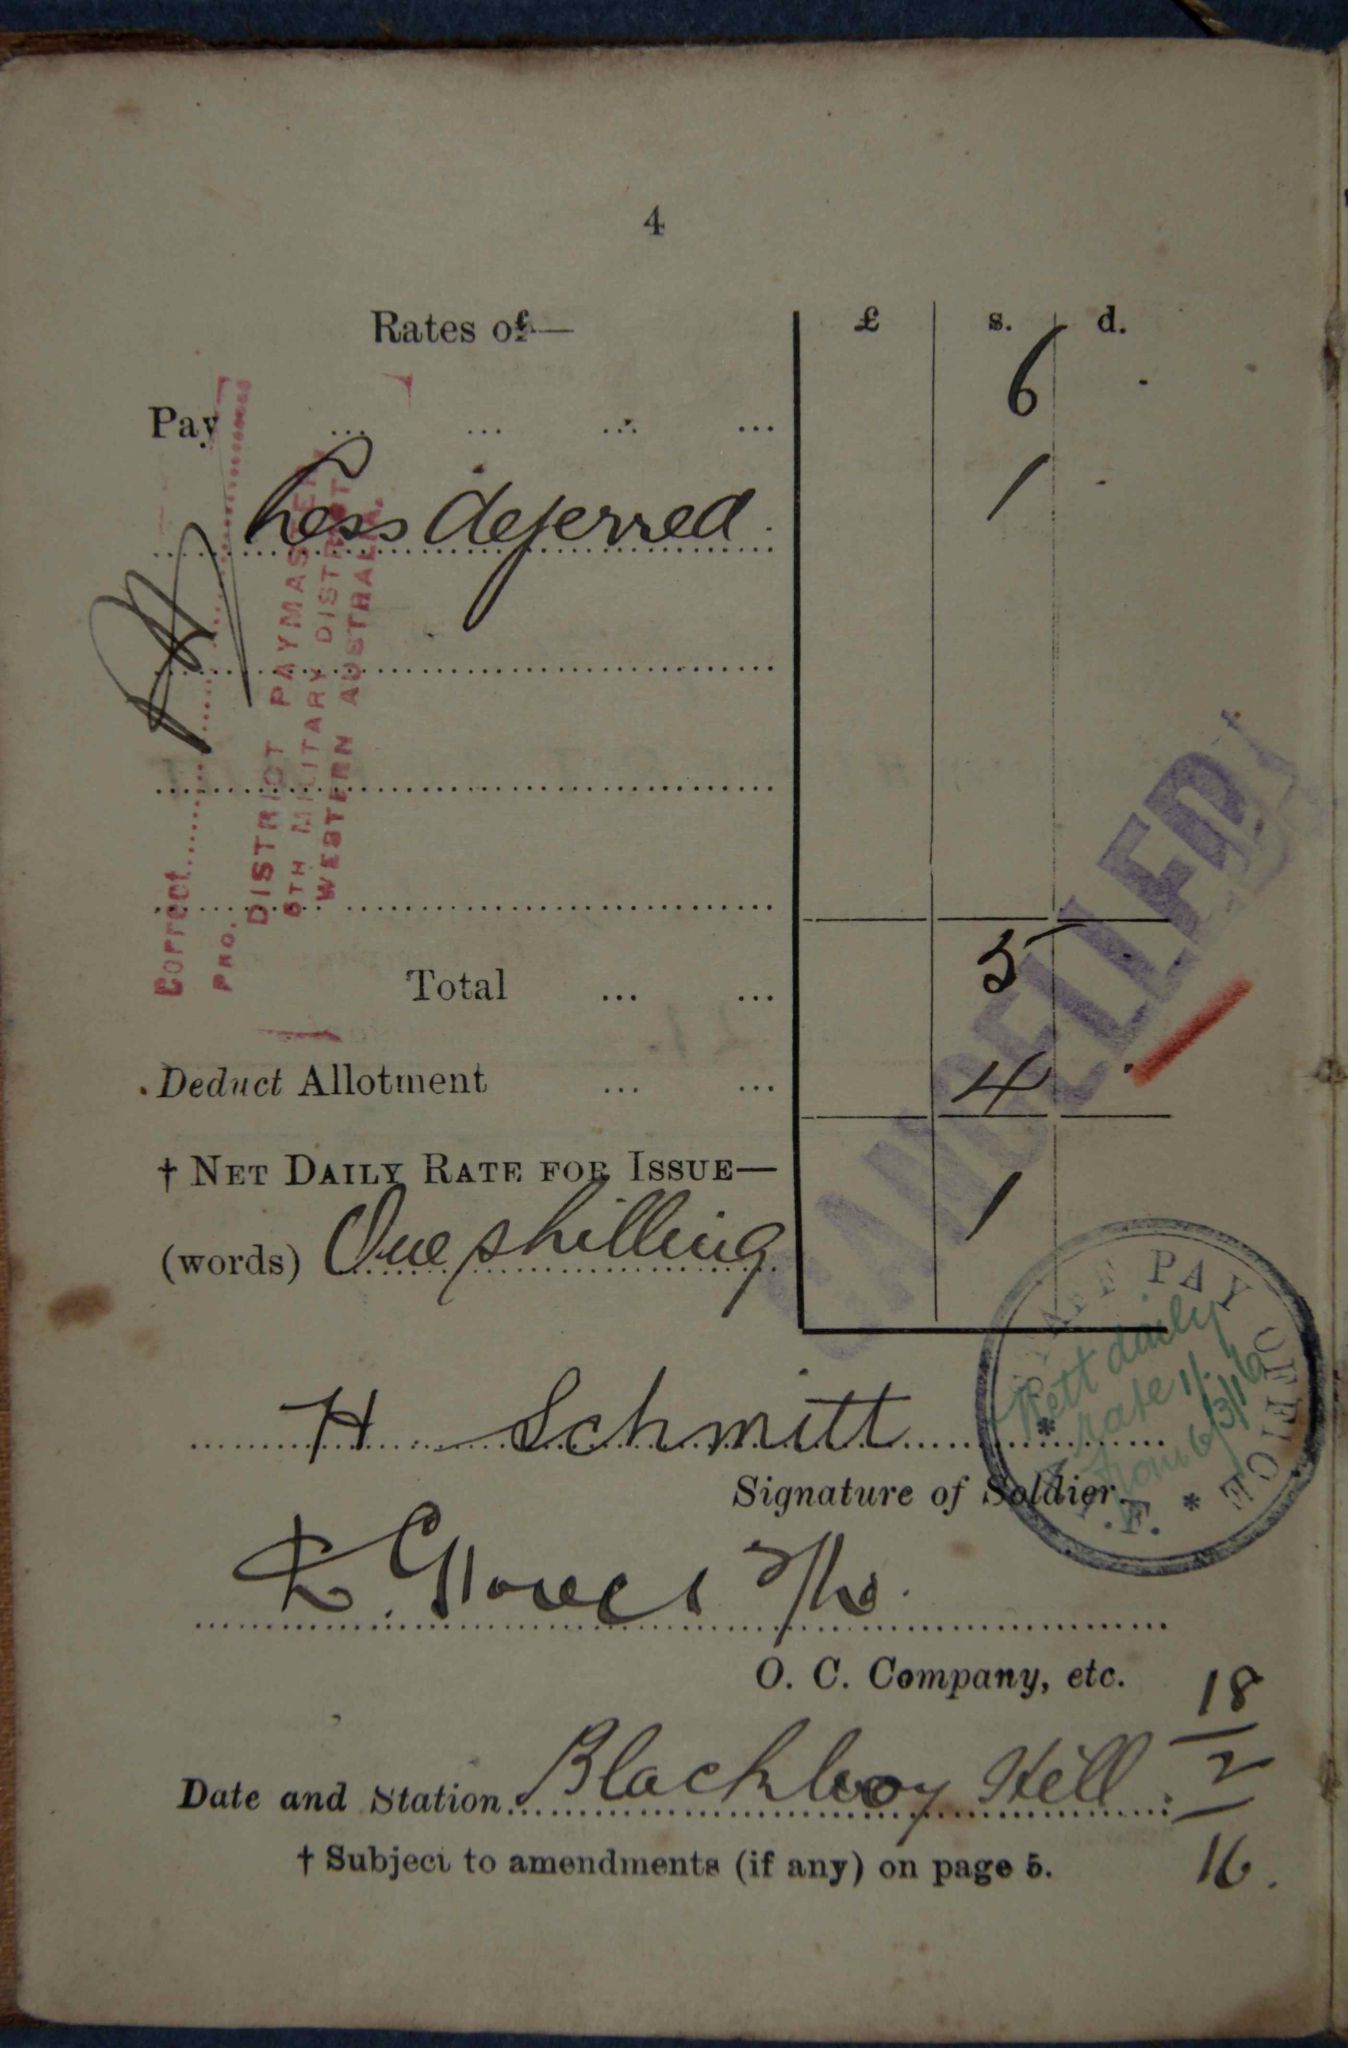 4
Rates of— £ s. d.
Pay ... ... ... ... 6
Less deferred 1
Correct
PRO.
DISTRICT PAYMASTER
5TH MILITARY DISTRICT
WESTERN AUSTRALIA.
CANCELLED
Total ... ... 5
Deduct Allotment ... ... 4
† NET DAILY RATE FOR ISSUE— 1
(words) One shilling
PAY OFFICE
I.F.
Nett daily
rate 1/.
from 6/3/16
H Schmitt
Signature of Soldier.
O. C. Company, etc.
Date and Station Blackboy Hill 18/2/16.
† Subject to amendments (if any) on page 5.